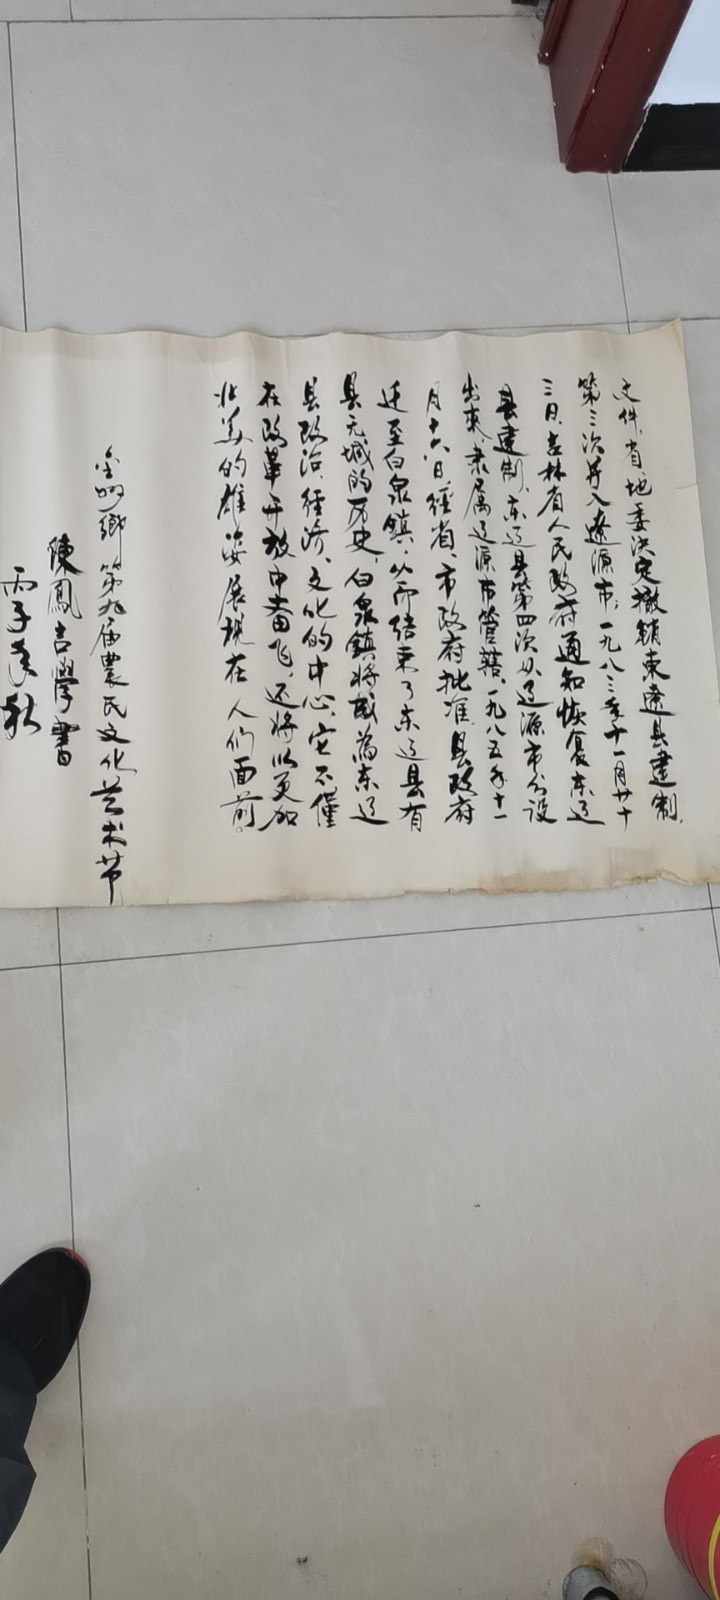 文件，省、地委决定撤銷東遼县建制，
第三次并入遼源市；一九八三年十一月廿十
三日，吉林省人民政府通知恢復东辽
县建制，东辽县第四次从辽源市分设
出來，隶属辽源市管轄，一九八五年十一
月十六日經省、市政府批准，县政府
迁至白泉鎮，从而结束了东辽县有
县无城的历史，白泉鎮将成為东辽
县政治、经济、文化的中心，它不僅
在改革开放中奋飞，还将以更加
壮美的雄姿展现在人们面前。
金州鄉第九届農民文化艺术节
陳鳳吉學書
丙子年秋